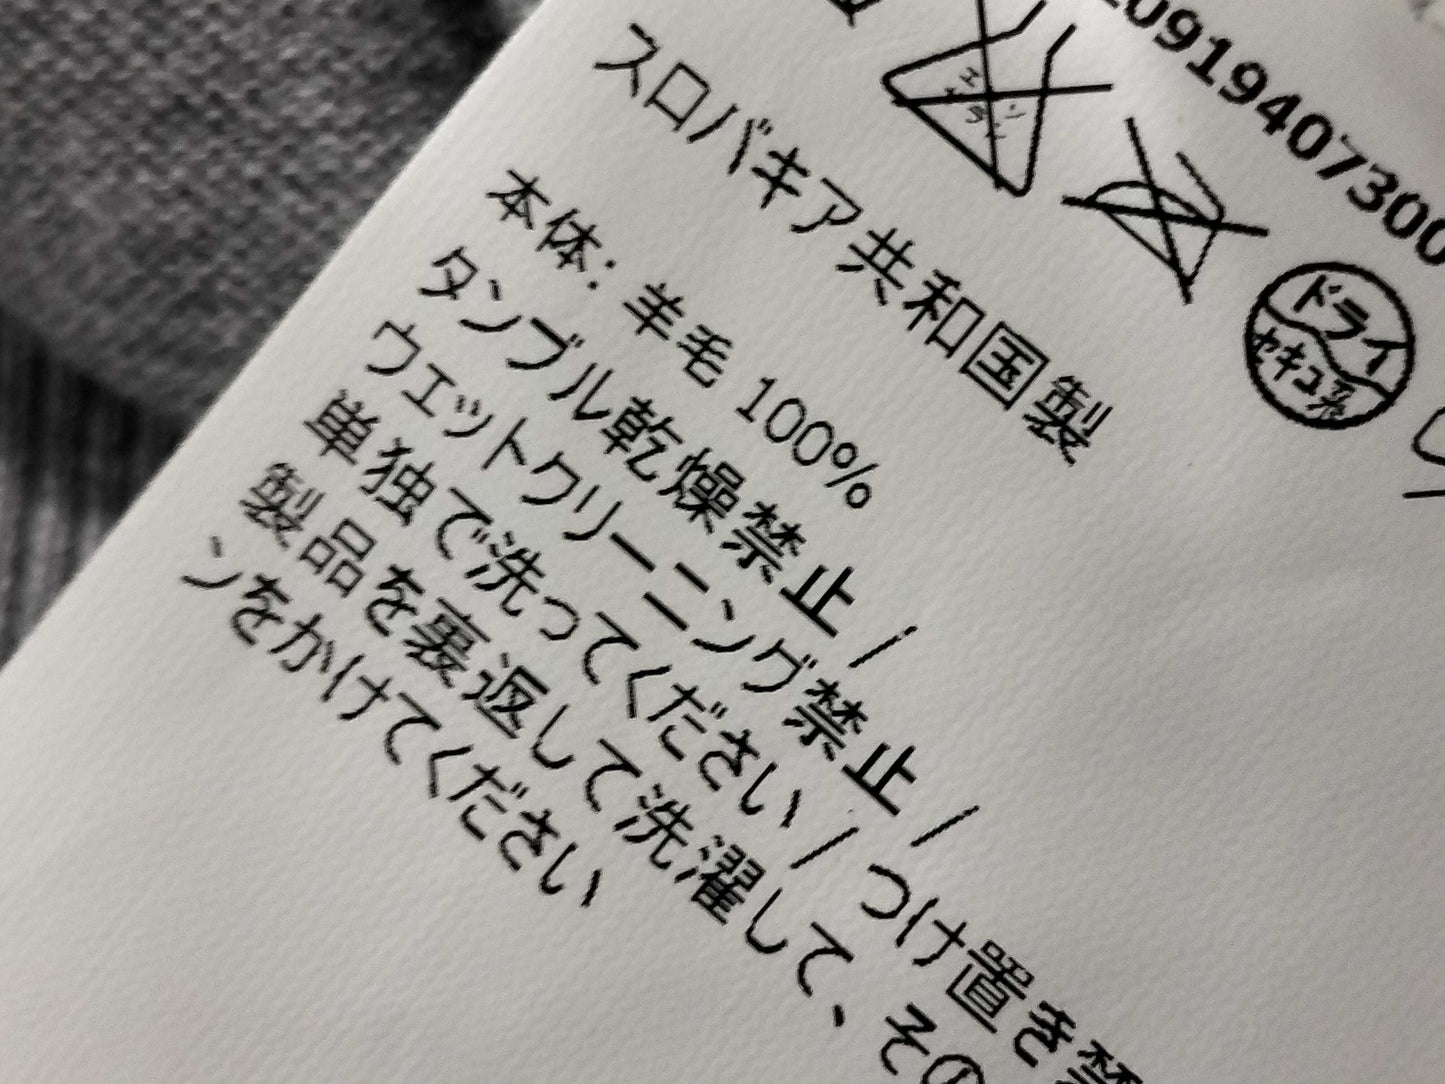 0919407300
エンソ
サラシ
ドライ
セキユ系
スロバキア共和国製
本体: 羊毛 100%
タンブル乾燥禁止 /
ウエットクリーニング禁止 /
単独で洗ってください / つけ置き禁
製品を裏返して洗濯して、その
ンをかけてください